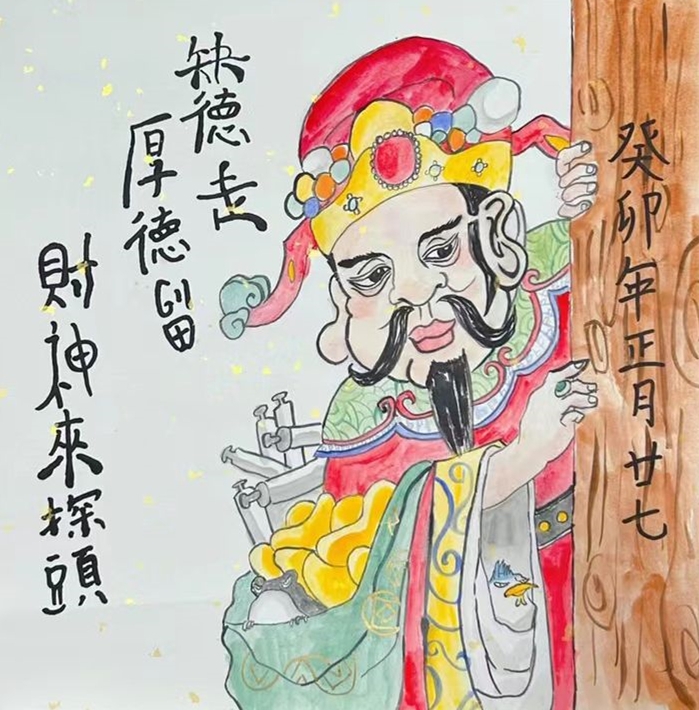 癸卯年正月廿七
缺德走
厚德留
財神來探頭